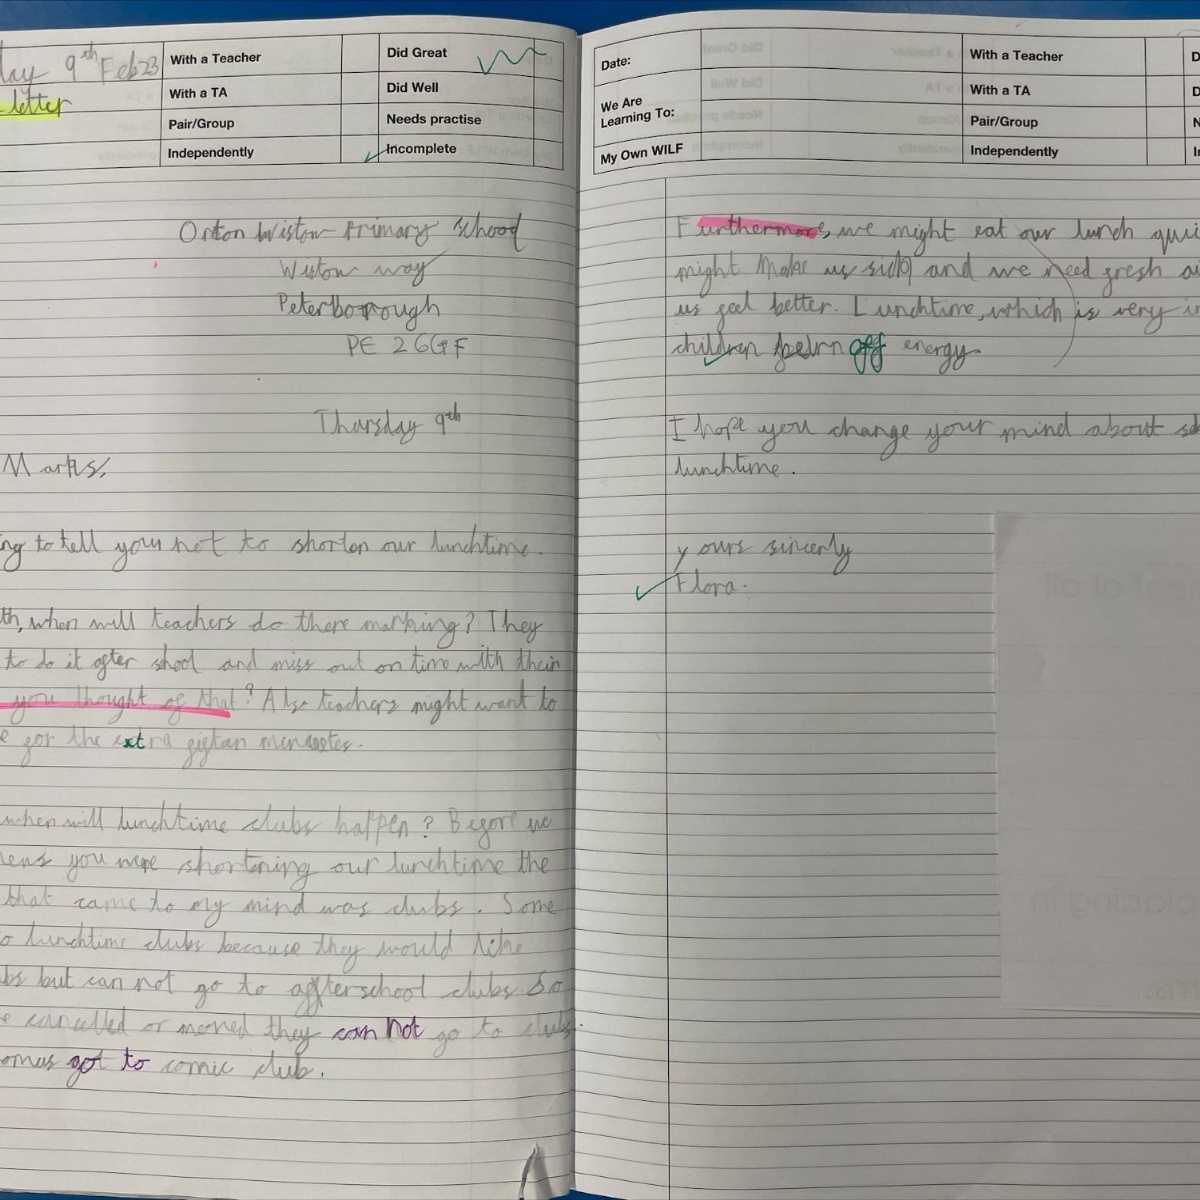 day 9th Feb 23
letter
With a Teacher
Did Great
With a TA
Did Well
Pair/Group
Needs practise
Independently
Incomplete
Orton Wistow Primary school
Wistow way
Peterborough
PE 2 6GF
Thursday 9th
Marks,
ng to tell you not to shorten our lunchtime.
th, when will teachers do there marking? They
to do it after shool and miss out on time with their
you thought of that? Also teachers might want to
e for the extra
when will lunchtime clubs happen? Before we
ens you were shortening our lunchtime the
that came to my mind was clubs. Some
o lunchtime clubs because they would like
bs but can not go to affterschool clubs. So
e cancelled or moved they can not go to clubs.
omus got to comic club.
Date:
With a Teacher
D
We Are
Learning To:
With a TA
D
Pair/Group
N
My Own WILF
Independently
In
Furthermore, we might eat our lunch qui
might make us sick and we need fresh a
us feel better. Lunchtime, which is very i
children off energy
I hope you change your mind about
lunchtime.
yours sincerly
Flora.